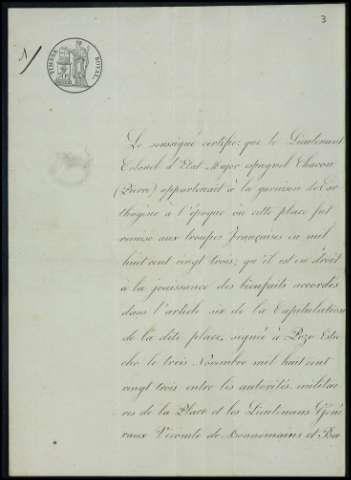 3
TIMBRE ROYAL
Le soussigné certifie, que le Lieutenant
Colonel d'Etat Major espagnol Chacon
(Pierre) appartenait à la garnison de Car
thogène à l'époque où cette place fut
remise aux troupes françaises en mil
huit cent vingt trois; qu'il est en droit
à la jouissance des bienfaits accordés
dans l'article six de la Capitulation
de la dite place, signée à Pozo Estre
cho le trois Novembre mil huit cent
vingt trois entre les autorités militai
res de la Place et les Lieutenans Géné
raux Vicomte de Bonnemains et Ba